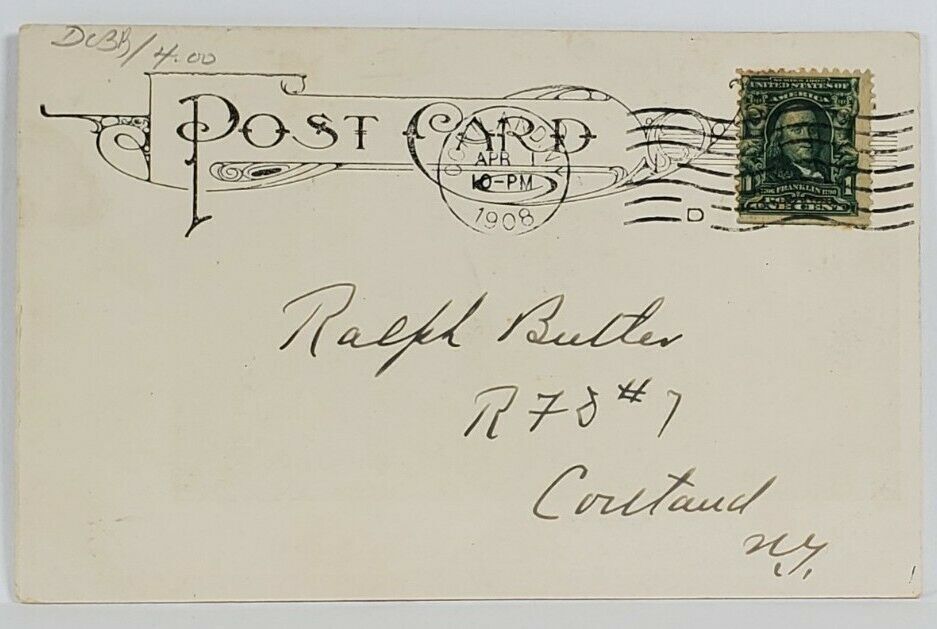 DcBR/4.00
POST CARD
APR 1
10-PM
1908
D
UNITED STATES OF
AMERICA
1 1706 FRANKLIN 1790 1
ONE CENT
Ralph Butler
R F D #7
Cortland
N.Y.